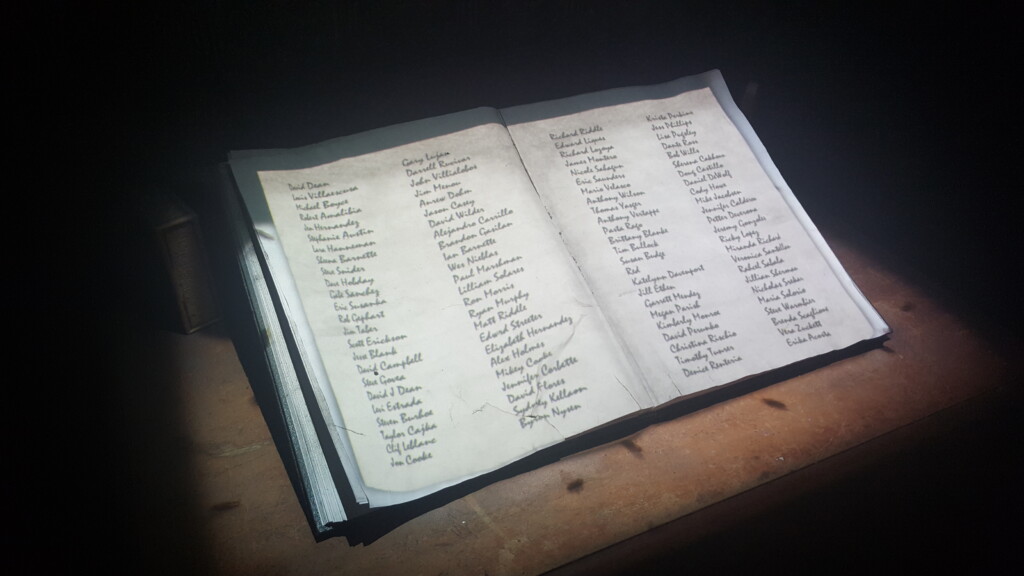 David Dean
Luis Villavicencio
Michael Boyer
Robert Amatihia
Jon Hernandez
Stephanie Austin
Lora Hanneman
Shane Barnette
Steve Snider
Dave Hobday
Gabe Sanchez
Eric Susanka
Rd Gephart
Jim Tabor
Scott Erickson
Jose Blank
David Campbell
Steve Govea
David J Dean
Lori Estrada
Steven Burhoe
Taylor Cajka
Clif LeBlanc
Jon Cooke
Gary Lujan
Darrell
John Villialobos
Jim Menon
Anrew Dahm
Jason Casey
David Wilder
Alejandro Carrillo
Brandon Gasilan
Ian Barnette
Wes Nieblas
Paul Marchman
Lilliam Solares
Ron Morris
Ryan Murphy
Matt Riddle
Edward Streeter
Elizabeth Hernandez
Alex Holmes
Mikey Cooke
Jennifer Corlette
David Flores
Sydney Kellawn
Nysen
Richard Riddle
Edward Liques
Richard Lozoya
James Montoya
Nicole Sahagun
Eric Saunders
Maria Velasco
Anthony Wilson
Thomas Yasger
Anthony Verhappe
Pasta Rojo
Brittany Blanke
Tim Bullock
Susan Budge
Red
Katelynn Davenport
Jill Ethen
Garrett Mendez
Megan Parish
Kimberly Monroe
David Perumko
Christina Rischio
Timothy Tumser
Denice Renteria
Krista Perkins
Jess Phillips
Lisa Pugsley
Dante Ross
Bob Wills
Shrona Cobham
Doug Castillo
Daniel DeWolf
Cody Howe
Mike Jacobsen
Jennifer Calderon
Petter Davisono
Jeremy Gonzales
Ricky Lopez
Miranda Richard
Veronica Santillan
Robel Sobalo
Jillian Sherman
Nicholas Sedar
Maria Solorio
Steve Wurmbier
Brenda Scaglione
Vern Zuchett
Erika Acosta